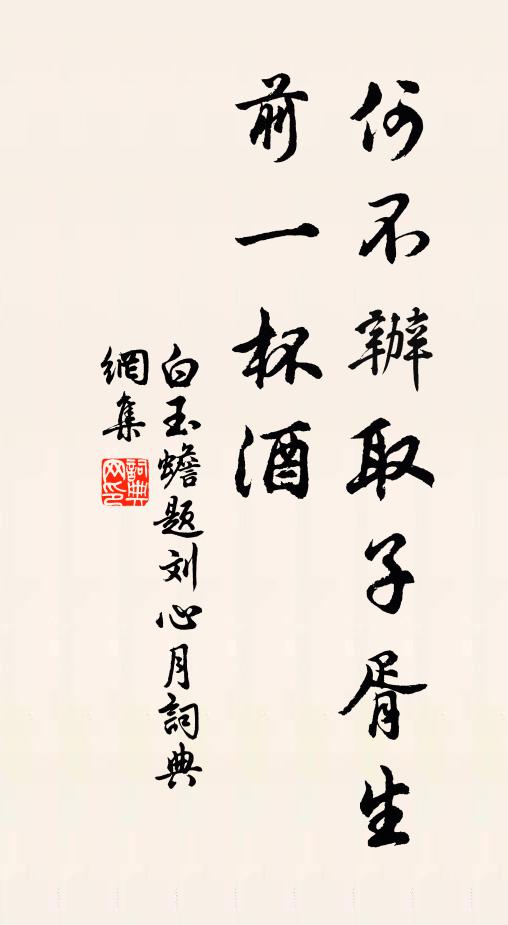 何不辦取子胥生
前一杯酒
白玉蟾题刘心月詞典
網集
詞典網印